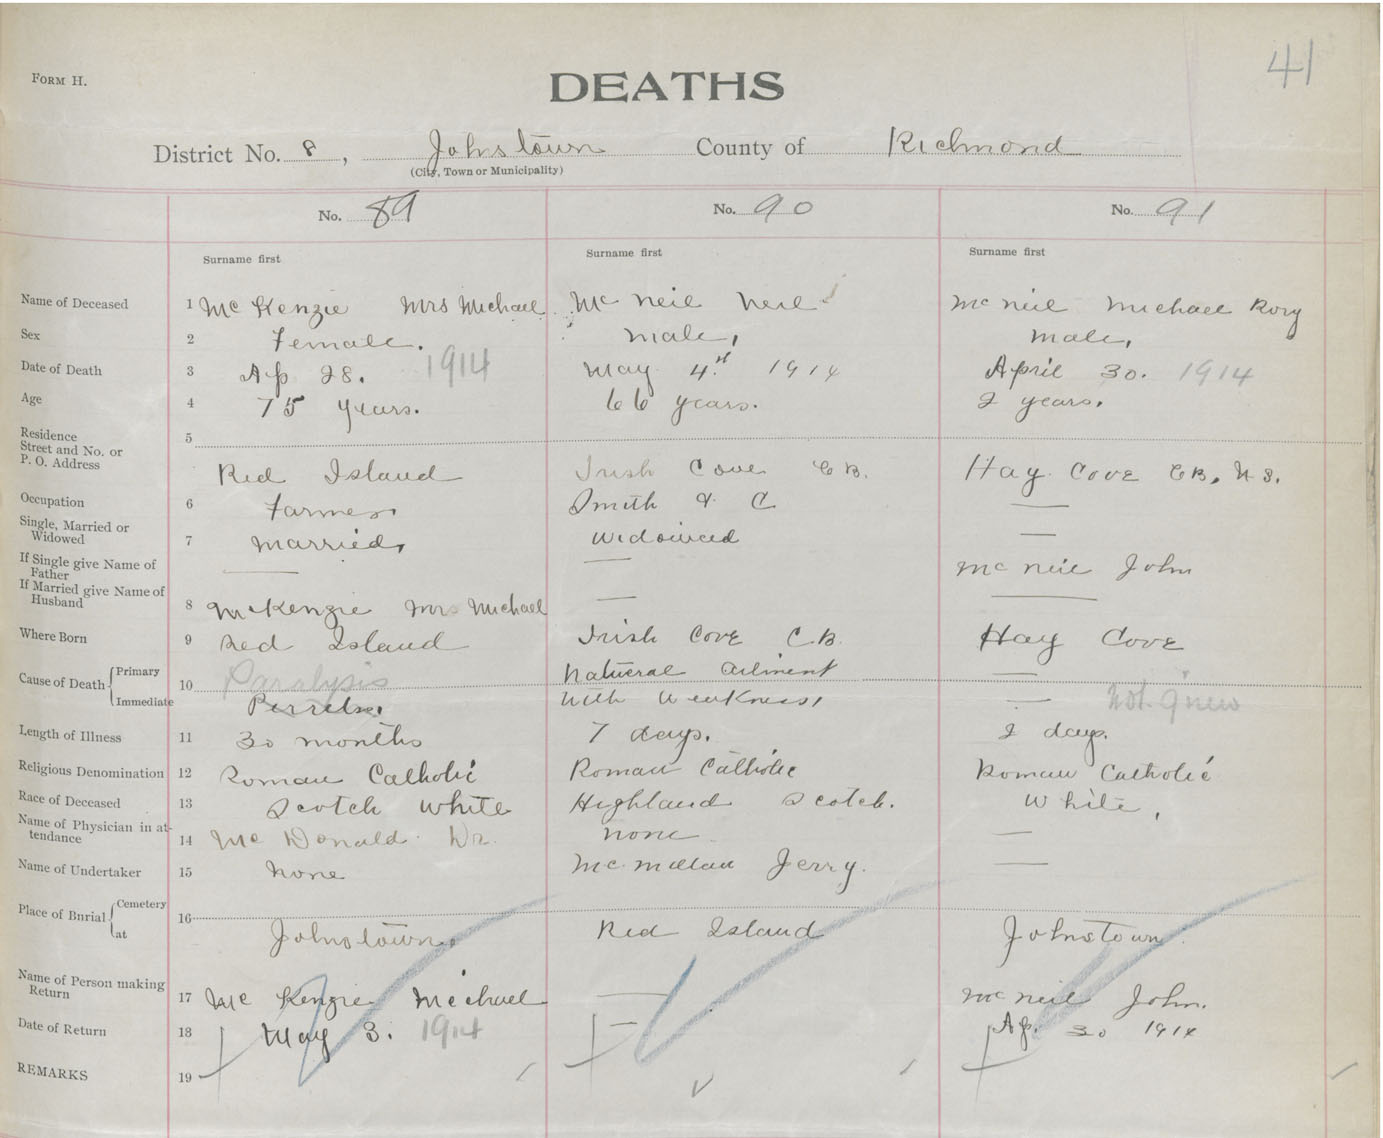 41
FORM H.
DEATHS
District No. 8, Johnstown County of Richmond
(City, Town or Municipality)
No. 89 No. 90 No. 91
Surname first Surname first Surname first
Name of Deceased 1 McKenzie Mrs Michael McNeil Neil McNeil Michael Rory
Sex 2 Female. male, male,
Date of Death 3 Ap 28. 1914 May 4th 1914 April 30. 1914
Age 4 75 years. 66 years. 2 years.
Residence 5
Street and No. or
P. O. Address Red Island Irish Cove CB. Hay Cove CB, N S.
Occupation 6 Farmer. Smith & C —
Single, Married or
Widowed 7 Married, Widowed —
If Single give Name of
Father — — McNeil John
If Married give Name of
Husband 8 McKenzie Mrs Michael — —
Where Born 9 Red Island Irish Cove C.B. Hay Cove
Cause of Death { Primary 10 Paralysis Natueral ailment —
Immediate with weakness, — not
Length of Illness 11 30 months 7 days. 2 days.
Religious Denomination 12 Roman Catholic Roman Catholic Roman Catholic
Race of Deceased 13 Scotch White Highland Scotch. White,
Name of Physician in at-
tendance 14 McDonald Dr. none —
Name of Undertaker 15 None McMillan Jerry. —
Place of Burial { Cemetery 16
at Johnstown. Red Island Johnstown.
Name of Person making
Return 17 McKenzie Michael — McNeil John.
Date of Return 18 May 3. 1914 — Ap. 30 1914
REMARKS 19